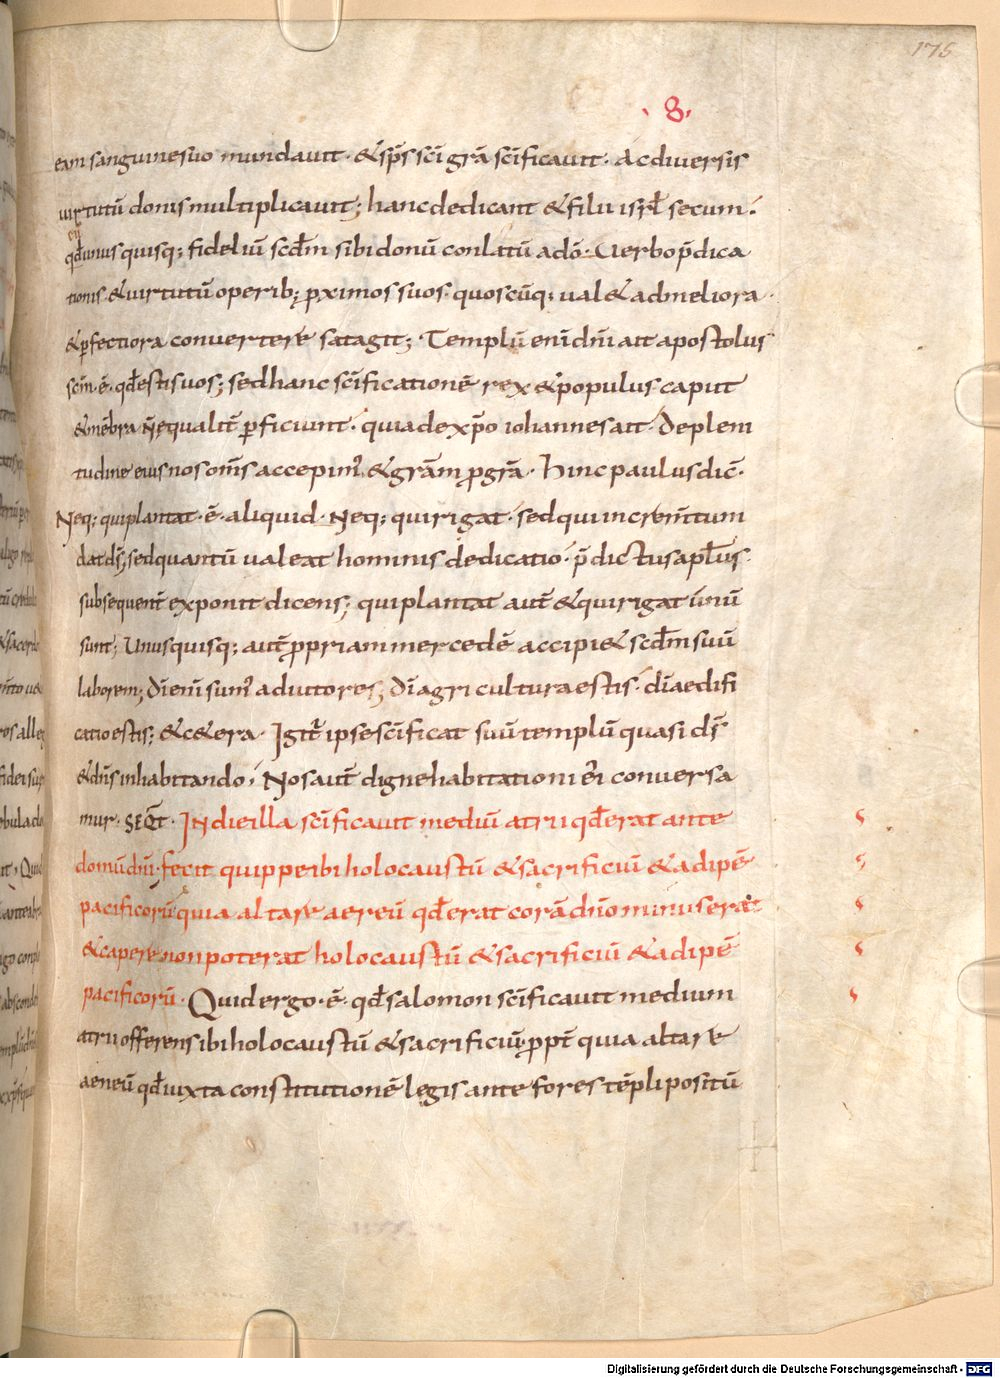 175
·8·
eam sanguinesuo mundavit · &sp̄s sc̄i grā sc̄ificavit · Acdiversis
virtutū donis multiplicavit; hancdedicant &filii isrl̄ secum ·
cū
qd̄ unusquisq; fideliū scd̄m sibi donū conlatū adō · Verbo p̄dica
tionis &virtutū operib; pximos suos · quoscūq; val& ad meliora ·
&pfectiora convertere satagit; · Templū enī dn̄i ait apostolus
sc̄m · ē · qd̄ estis vos; sed hanc sc̄ificationē rex &populus caput
&mēbra n̄ equalit̄ pficiunt · quia de xp̄o iohannes ait · De pleni
tudine eius nos om̄s accepim' &grām p grā · Hinc paulus dic̄ ·
Neq; qui plantat · ē · aliquid · Neq; qui rigat · sed qui increm̄tum
dat ds̄; sed quantū valeat hominis dedicatio · p̄dictus apl̄us ·
subsequent̄ exponit dicens; qui plantat aut̄ &qui rigat unū
sunt; Unusquisq; aut̄ ppriam mercedē accipi& scd̄m suū
laborem; dī enī sum' adiutores; dī agricultura estis · dī aedifi
catio estis; &c&era · Igit̄ ipse sc̄ificat suū templū quasi ds̄
&dn̄s inhabitando · Nos aut̄ digne habitationi ei conversa
mur · SEQT̄ · IN die illa sc̄ificavit mediū atrii qd̄ erat ante
domū dn̄i · fecit quippe ibi holocaustū &sacrificiū &adipē
pacificorū quia altare aereū qd̄ erat corā dn̄o minus erat
&capere non poterat holocaustū &sacrificiū &adipē
pacificorū · Quid ergo · ē · qd̄ salomon sc̄ificavit medium
atrii offerens ibi holocaustū &sacrificiū · ppt̄ quia altare
aeneū qd̄ iuxta constitutionē legis ante fores tēpli positū
Digitalisierung gefördert durch die Deutsche Forschungsgemeinschaft - DFG